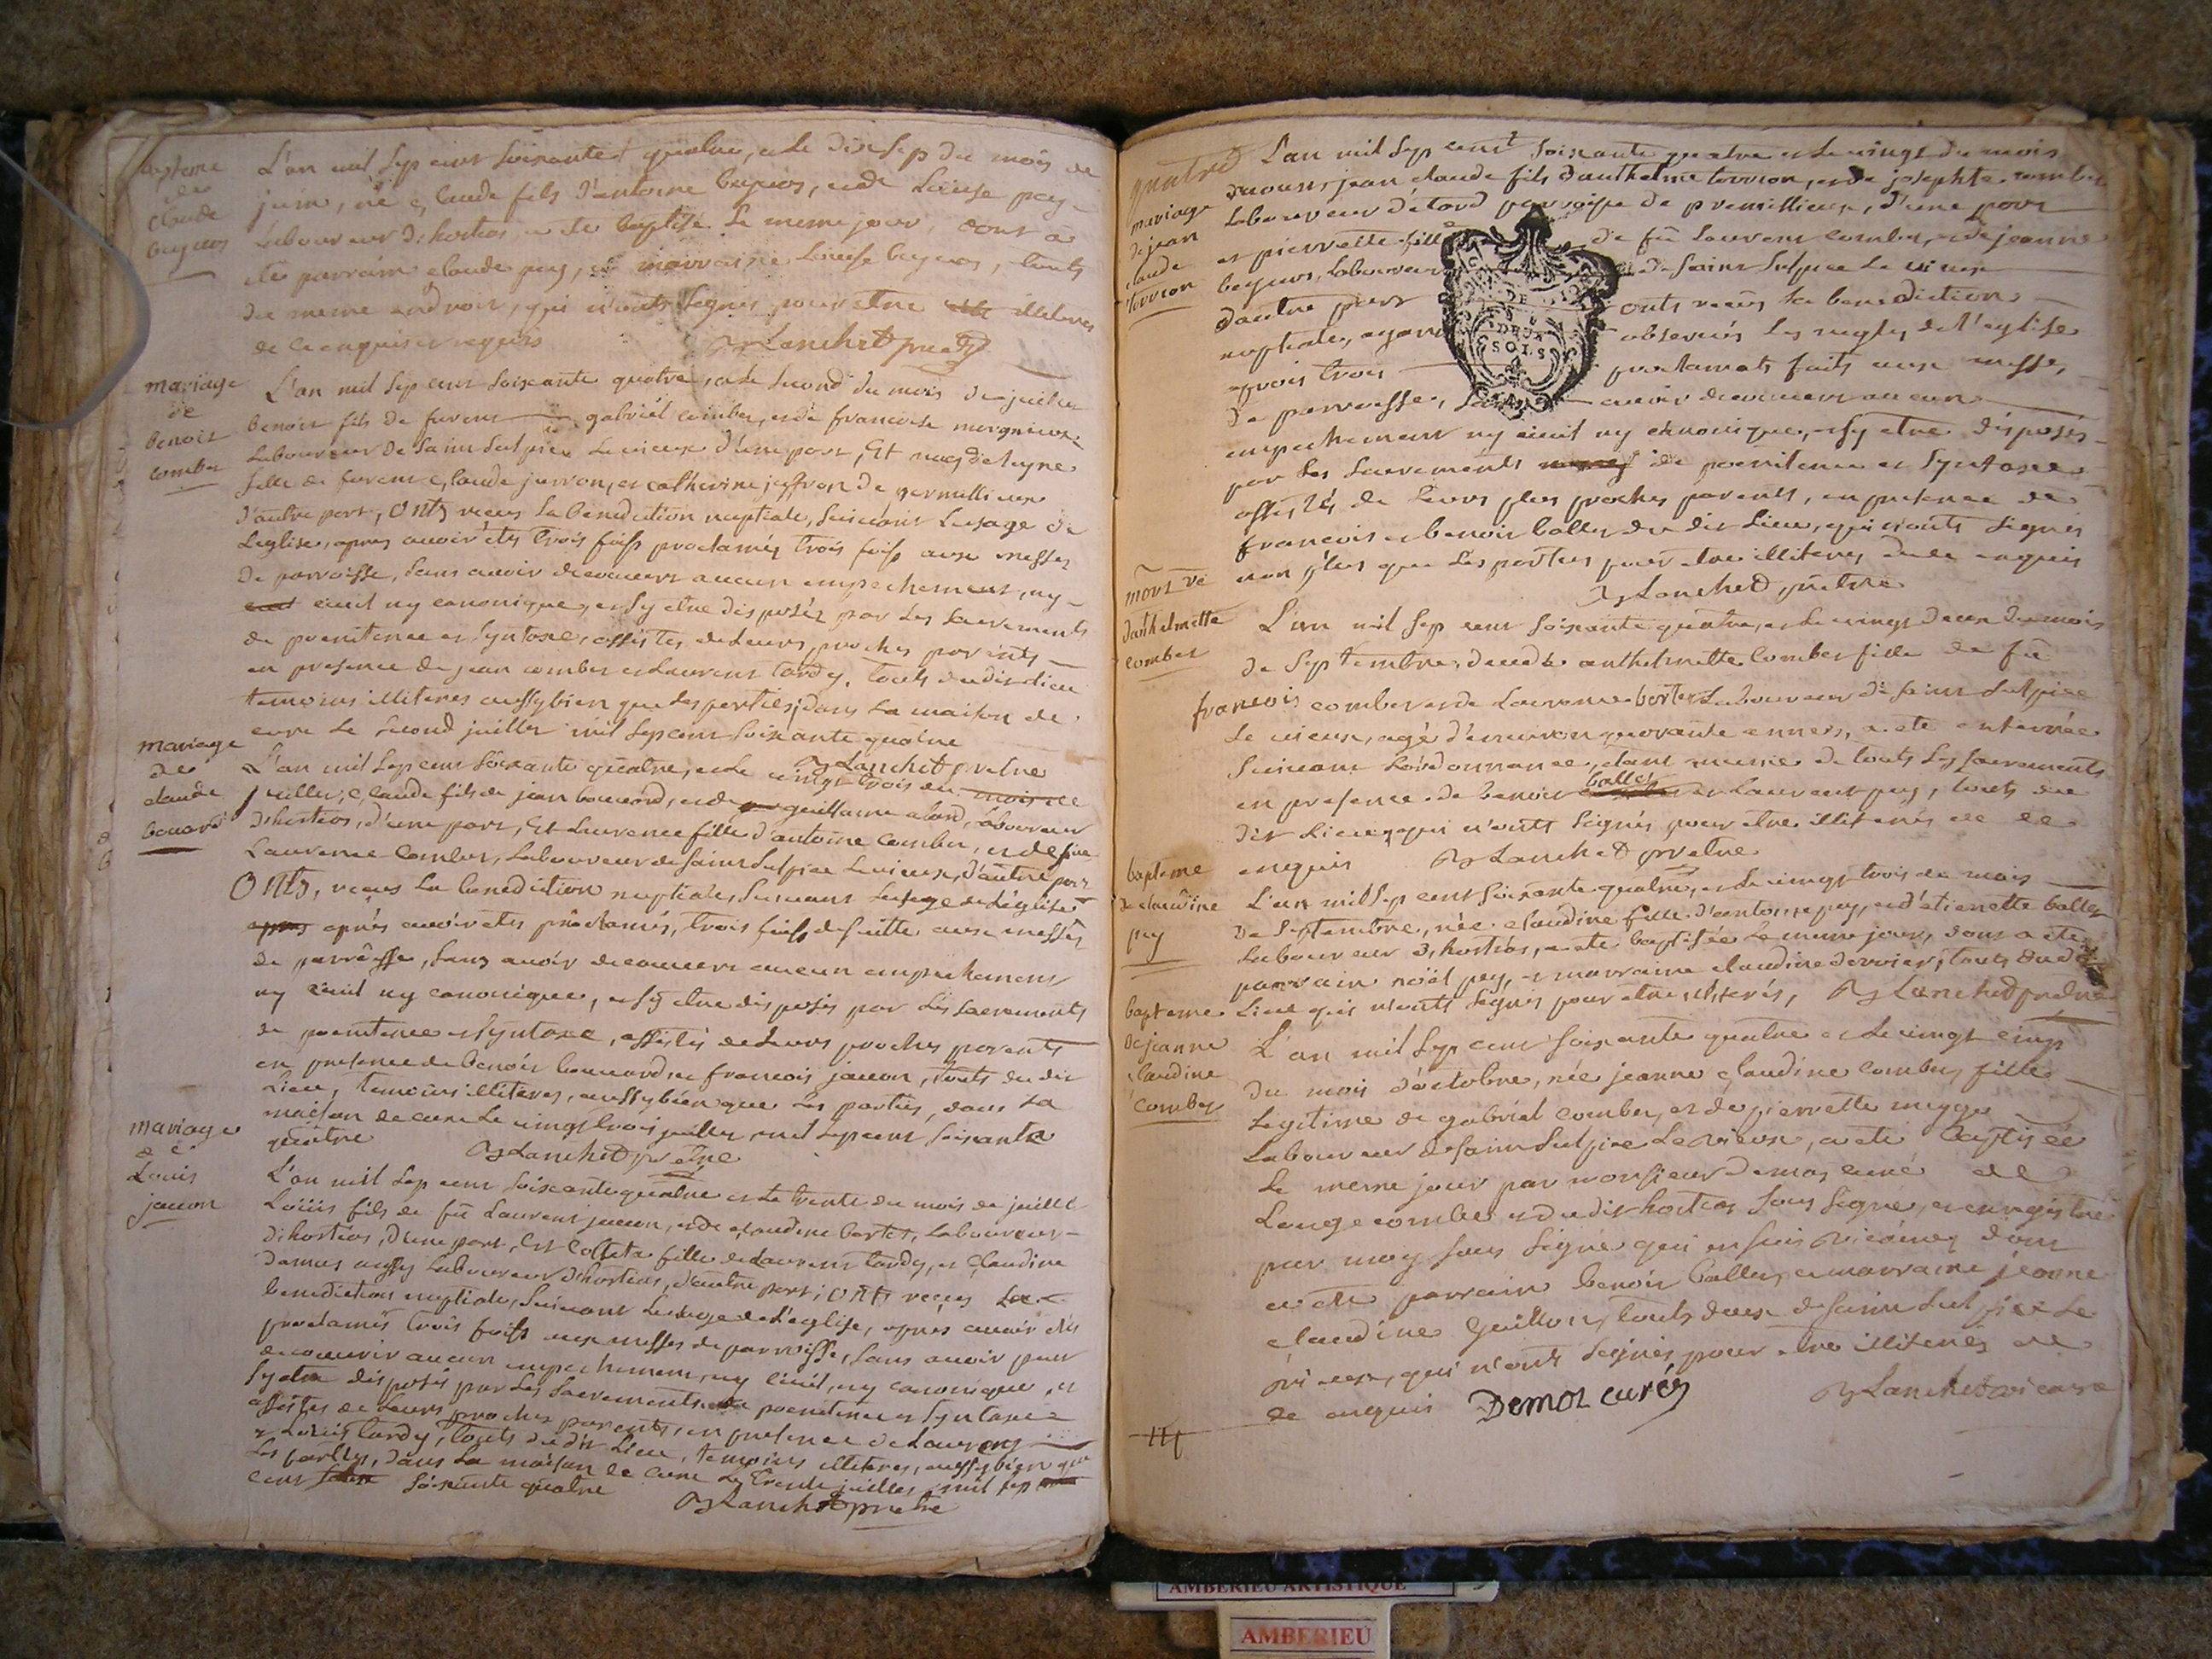 bapteme
de
claude
beguos
L'an mil sep cent soixante et quatre, et le dix sep du mois de
juin, né claude fils d'antoine beguos, et de Louise puy
laboureur d'hostias, a ete baptisé le meme jour, dont a
ete parrain claude puy, et marraine Louise beguos, touts
du meme androit, qui n'onts signes pour etre illiteres
de ce enquis et requis Lanchet
mariage
de
benoit
comber
L'an mil sep cent soixante quatre, et le second du mois de juillet
benoit fils de furent gabriel comber, et de francoise
laboureur de saint sulpice le vieux d'une part, Et
fille de furent claude juvron, et catherine jeffron de
d'autre part, Onts reçus la benediction nuptiale, suivant l'usage de
l'eglise, apres avoir étés trois foiss proclamés trois foiss aux messes
de parroisse, sans avoir decouvert aucun empechement, ny
civil ny canonique, et sy etre disposéz par les sacrements
de poenitence et syntaxe, assistes de leurs proches parents
en presence de jean comber et laurent tardy, touts du dit lieu
temoins illiteres aussy bien que les parties, dans la maison de
cure le second juillet mil sep cent soixante quatre
Lanchet pretre
mariage
de
claude
bouard
L'an mil sep cent soixante quatre, et le vingt trois du mois de
juillet, claude fils de jean bouvard, et de guillaume alard, laboureur
d'hostias, d'une part, Et Laurence fille d'antoine comber, et de füe
Laurence comber, laboureur de saint sulpice le vieux, d'autre part
Onts, reçus la benediction nuptiale, suivant l'usage de l'église
après avoir etés proclamés, trois foiss de suitte aux messes
de parroisse, sans avoir decouvert aucun empechement
ny civil ny canonique, et sy etre disposés par les sacrements
de poenitence et syntaxe, assistés de leurs proches parents
en presence de benoit bouvard et francois jacon, touts du dit
lieu, temoins illiteres, aussy bien que les parties, dans la
maison de cure le vingt trois juillet mil sep cent soixante
quatre Lanchet pretre
mariage
de
Louis
jacon
L'an mil sep cent soixante quatre et le trente du mois de juillet
Loüis fils de fü Laurent jacon, et de claudine bortet, laboureur
d'hostias, d'une part, Et Colleta fille de Laurent tardy, et claudine
damas aussy laboureur d'hostias, d'autre part, Onts reçus la
benediction nuptiale, suivant l'usage de l'église, apres avoir étés
proclamés trois foiss aux messes de parroisse, sans avoir peu
decouvrir aucun empechement, ny civil, ny canonique, et
sy etre disposés par les sacrements de poenitence et syntaxe
assistes de leurs proches parents, en presence de Laurent
et Louis tardy, touts du dit lieu, temoins illiteres, aussy bien que
les parties, dans la maison de cure le trente juillet mil sep
cent soixante quatre Lanchet pretre
quatre
mariage
de jean
claude
torrion
L'an mil sep cent soixante quatre et le vingt du mois
d'aoust jean claude fils d'anthelme torrion, et de josephte comber
laboureur d'étord parroisse de premillieux, d'une part
et pierrette fille de fü laurent comber, et de jeanne
beguos, laboureur de saint sulpice le vieux
d'autre part onts reçus la benediction
nuptiale, ayant observés les regles de l'eglise
aprois trois proclamats faits aux messes
de parroisse, sans avoir decouvert aucun
empechement ny civil ny chnonique, et sy etre disposés
par les sacrements de poenitence et syntaxe
assistés de leurs plus proches parents, en presence de
francois et benoit balley du dit lieu, qui n'onts signés
non plus que les parties pour etre illiteres de ce enquis
Lanchet pretre
DEUX
SOLS
mort de
d'anthelmette
comber
L'an mil sep cent soixante quatre, et le vingt deux du mois
de septembre, decedée anthelmette comber fille de fü
francois comber et de Laurence bortet laboureur de saint sulpice
le vieux, agé d'environ quarante annees, a ete enterrée
suivant l'ordonnance, etant munie de touts les sacrements
en presence de benoit balley et laurent puy, touts du
dit lieu, qui n'onts signés pour etre illiterés de ce
enquis Lanchet pretre
bapteme
de claudine
puy
L'an mil sep cent soixante quatre, et le vingt trois du mois
de septembre, née claudine fille d'antoine puy, et d'etienette balley
laboureur d'hostias, a ete baptisée le meme jour, dont a ete
parrain noël puy, et marraine claudine dervier, touts du dit
lieu qui n'onts signés pour etre illiterés, Lanchet pretre
bapteme
de jeanne
claudine
comber
L'an mil sep cent soixante quatre et le vingt cinq
du mois d'octobre, née jeanne claudine comber, fille
legitime de gabriel comber, et de pierrette
laboureur de saint sulpice le vieux, a ete baptisée
le meme jour par monsieur demoz curé de
Longecombe et du dit hostias sous signé, et enregistré
par moy sous signé qui en suis vicaire, dont
a ete parrain benoit balley, et marraine jeanne
claudine guillon, touts deux de saint sulpice le
vieux, qui n'onts signés pour etre illiterés de
ce enquis Demoz curé Lanchet vicaire
AMBERIEU ARTISTIQUE
AMBERIEU